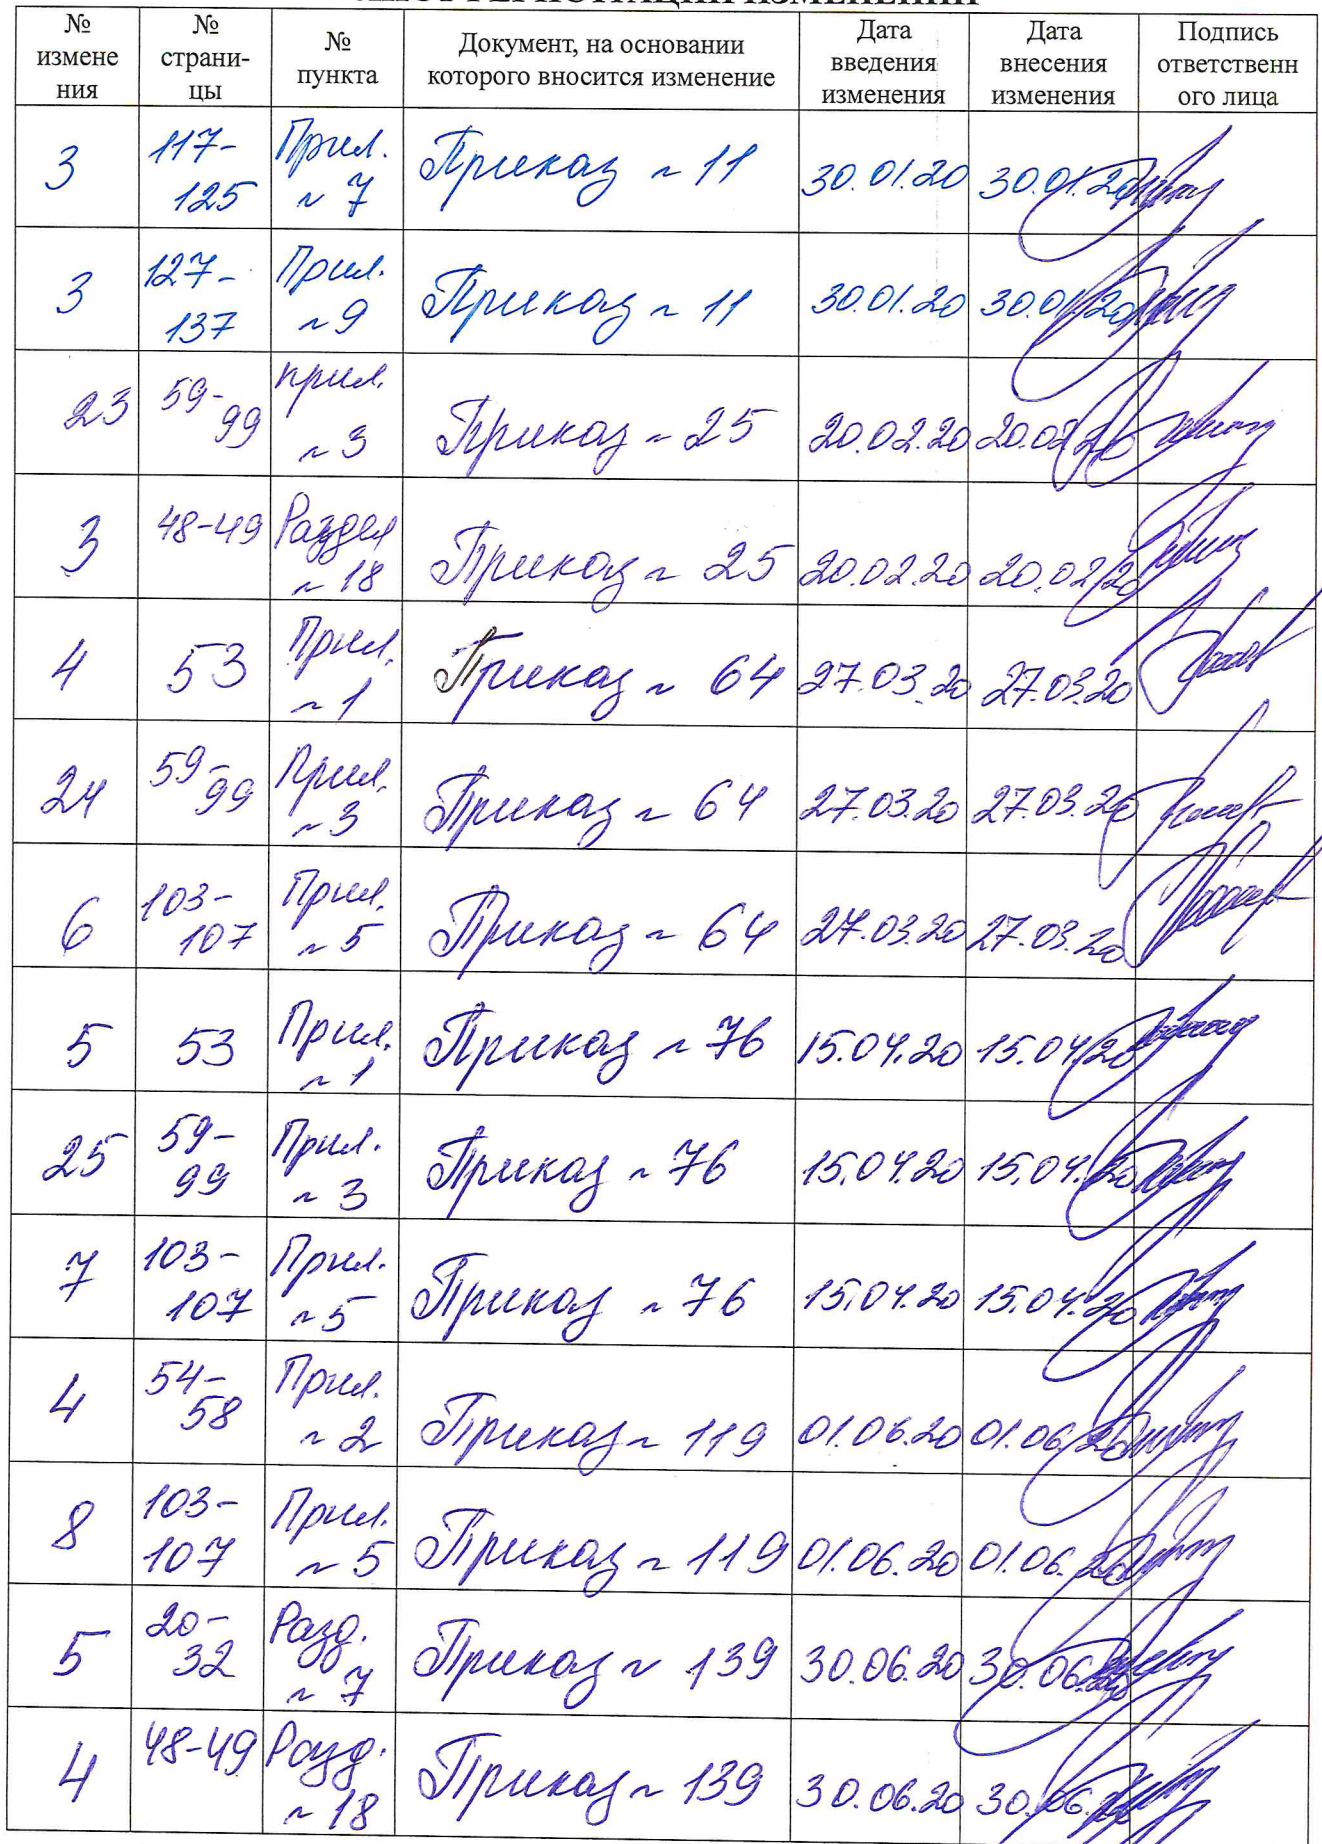 ЛИСТ РЕГИСТРАЦИИ ИЗМЕНЕНИЙ
№ измене ния | № страни- цы | № пункта | Документ, на основании которого вносится изменение | Дата введения изменения | Дата внесения изменения | Подпись ответственн ого лица
3 | 117-125 | Прил. № 7 | Приказ № 11 | 30.01.20 | 30.01.20
3 | 127-137 | Прил. № 9 | Приказ № 11 | 30.01.20 | 30.01.20
23 | 59-99 | прил. № 3 | Приказ № 25 | 20.02.20 | 20.02.20
3 | 48-49 | Раздел № 18 | Приказ № 25 | 20.02.20 | 20.02.20
4 | 53 | Прил. № 1 | Приказ № 64 | 27.03.20 | 27.03.20
24 | 59-99 | Прил. № 3 | Приказ № 64 | 27.03.20 | 27.03.20
6 | 103-107 | Прил. № 5 | Приказ № 64 | 27.03.20 | 27.03.20
5 | 53 | Прил. № 1 | Приказ № 76 | 15.04.20 | 15.04.20
25 | 59-99 | Прил. № 3 | Приказ № 76 | 15.04.20 | 15.04.20
7 | 103-107 | Прил. № 5 | Приказ № 76 | 15.04.20 | 15.04.20
4 | 54-58 | Прил. № 2 | Приказ № 119 | 01.06.20 | 01.06.20
8 | 103-107 | Прил. № 5 | Приказ № 119 | 01.06.20 | 01.06.20
5 | 20-32 | Разд. № 7 | Приказ № 139 | 30.06.20 | 30.06.20
4 | 48-49 | Разд. № 18 | Приказ № 139 | 30.06.20 | 30.06.20